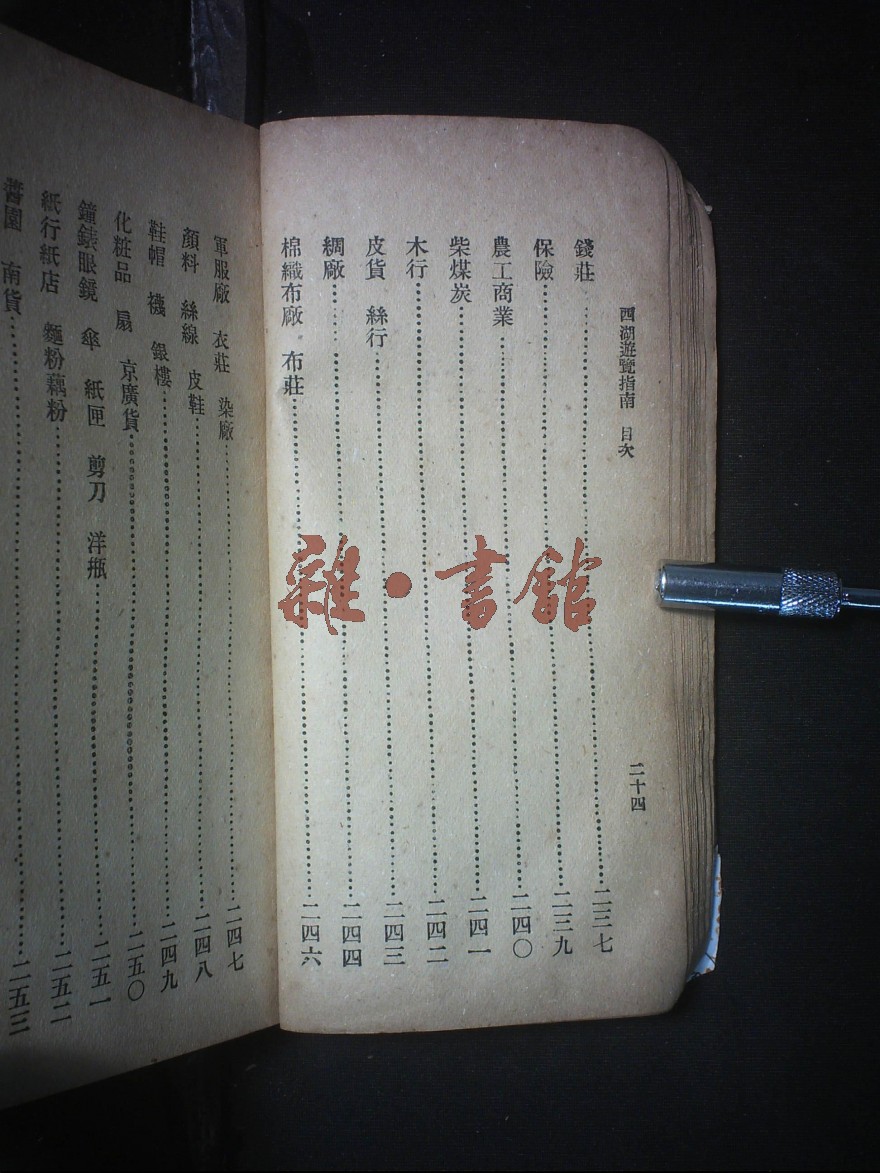 西湖遊覽指南 目次 二十四
錢莊……二三七
保險……二三九
農工商業……二四〇
柴煤炭……二四一
木行……二四二
皮貨 絲行……二四三
綢廠……二四四
棉織布廠 布莊……二四六
軍服廠 衣莊 染廠……二四七
顏料 絲線 皮鞋……二四八
鞋帽 襪 銀樓……二四九
化粧品 扇 京廣貨……二五〇
鐘錶眼鏡 傘 紙匣 剪刀 洋瓶……二五一
紙行紙店 麵粉藕粉……二五二
醬園 南貨……二五三
雜·書館